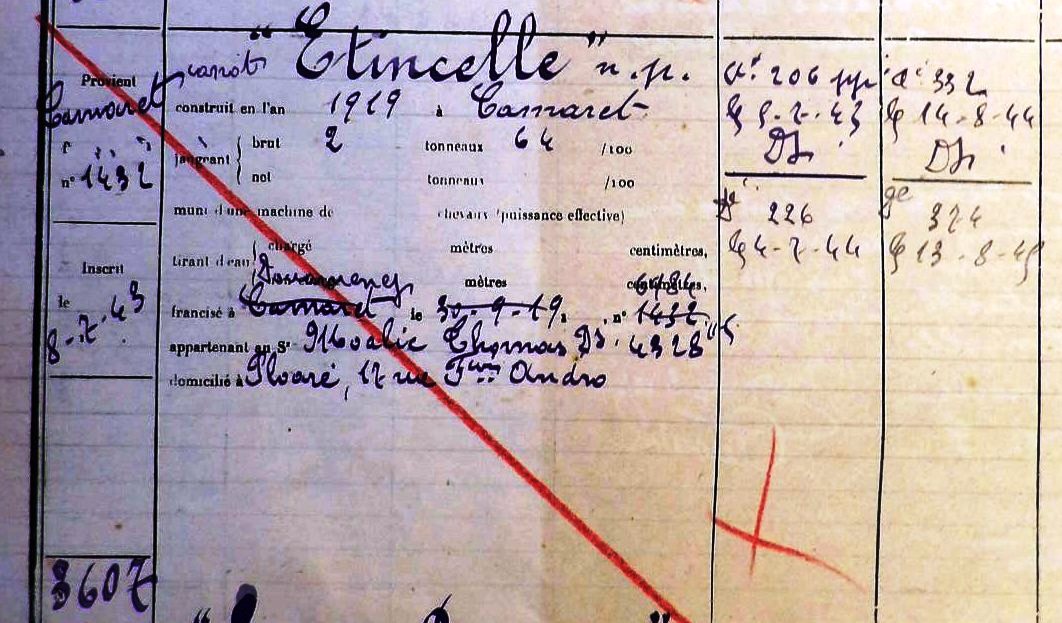 canot " Etincelle " n.p.
Provient
Camaret
f°
n° 1432
Inscrit
le
8-7-43
3607
construit en l'an 1919 à Camaret
jaugeant brut 2 tonneaux 64 /100
net tonneaux /100
muni d'une machine de chevaux (puissance effective)
tirant d'eau chargé mètres centimètres,
Douarnenez mètres centimètres, 6184
francisé à Camaret le 30-9-19. n° 1432
appartenant au Sr Moalic Thomas Dz 4328
domicilié à Ploaré, 17 rue Andro
206
9-7-43
Dz
226
4-7-44
332
14-8-44
Dz
374
13-8-45